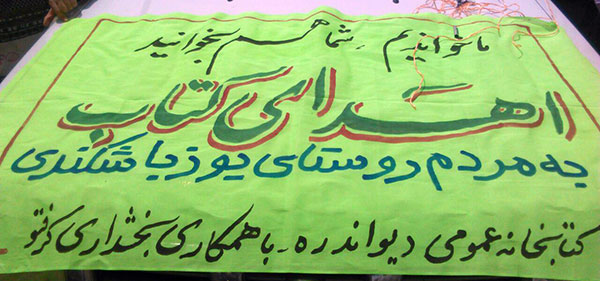 ما خواندیم ، شما هم بخوانید
اهدای کتاب
به مردم روستای یوزباشکندی
کتابخانه عمومی دیواندره - با همکاری بخشداری کرفتو